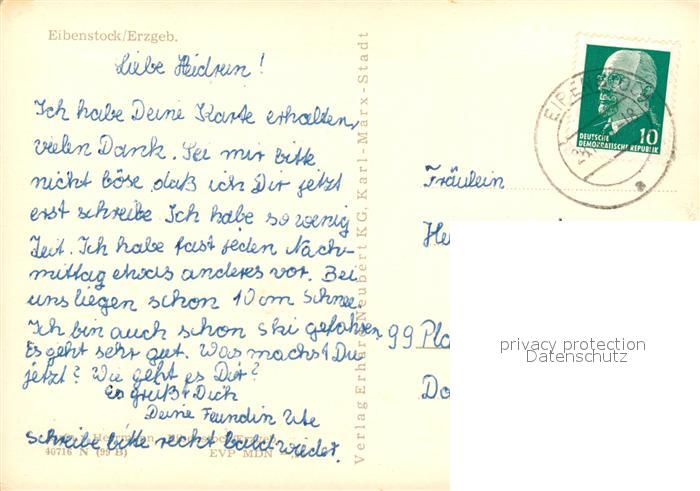 Eibenstock/Erzgeb.
Liebe Heidrun!
Ich habe Deine Karte erhalten,
vielen Dank. Sei mir bitte
nicht böse, daß ich Dir jetzt
erst schreibe. Ich habe so wenig
Zeit. Ich habe fast jeden Nach-
mittag etwas anderes vor. Bei
uns liegen schon 10 cm Schnee.
Ich bin auch schon Ski gefahren
Es geht sehr gut. Was machst Du
jetzt? Wie geht es Dir?
Es grüßt Dich
Deine Feundin Ute
Schreibe bitte recht bald wieder.
40716 N (99 B)
EVP MDN
Verlag Erhard Neubert KG, Karl-Marx-Stadt
10
DEUTSCHE
DEMOKRATISCHE REPUBLIK
EIBENSTOCK
Fräulein
He
99 Pla
Do
privacy protection
Datenschutz